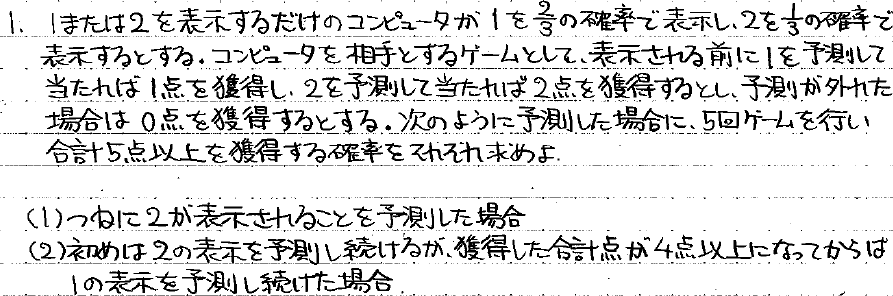 1. 1または2を表示するだけのコンピュータが1を2/3の確率で表示し、2を1/3の確率で
表示するとする。コンピュータを相手とするゲームとして、表示される前に1を予測して
当たれば1点を獲得し、2を予測して当たれば2点を獲得するとし、予測が外れた
場合は0点を獲得するとする。次のように予測した場合に、5回ゲームを行い
合計5点以上を獲得する確率をそれぞれ求めよ.
(1)つねに2が表示されることを予測した場合
(2)初めは2の表示を予測し続けるが、獲得した合計点が4点以上になってからは
1の表示を予測し続けた場合.